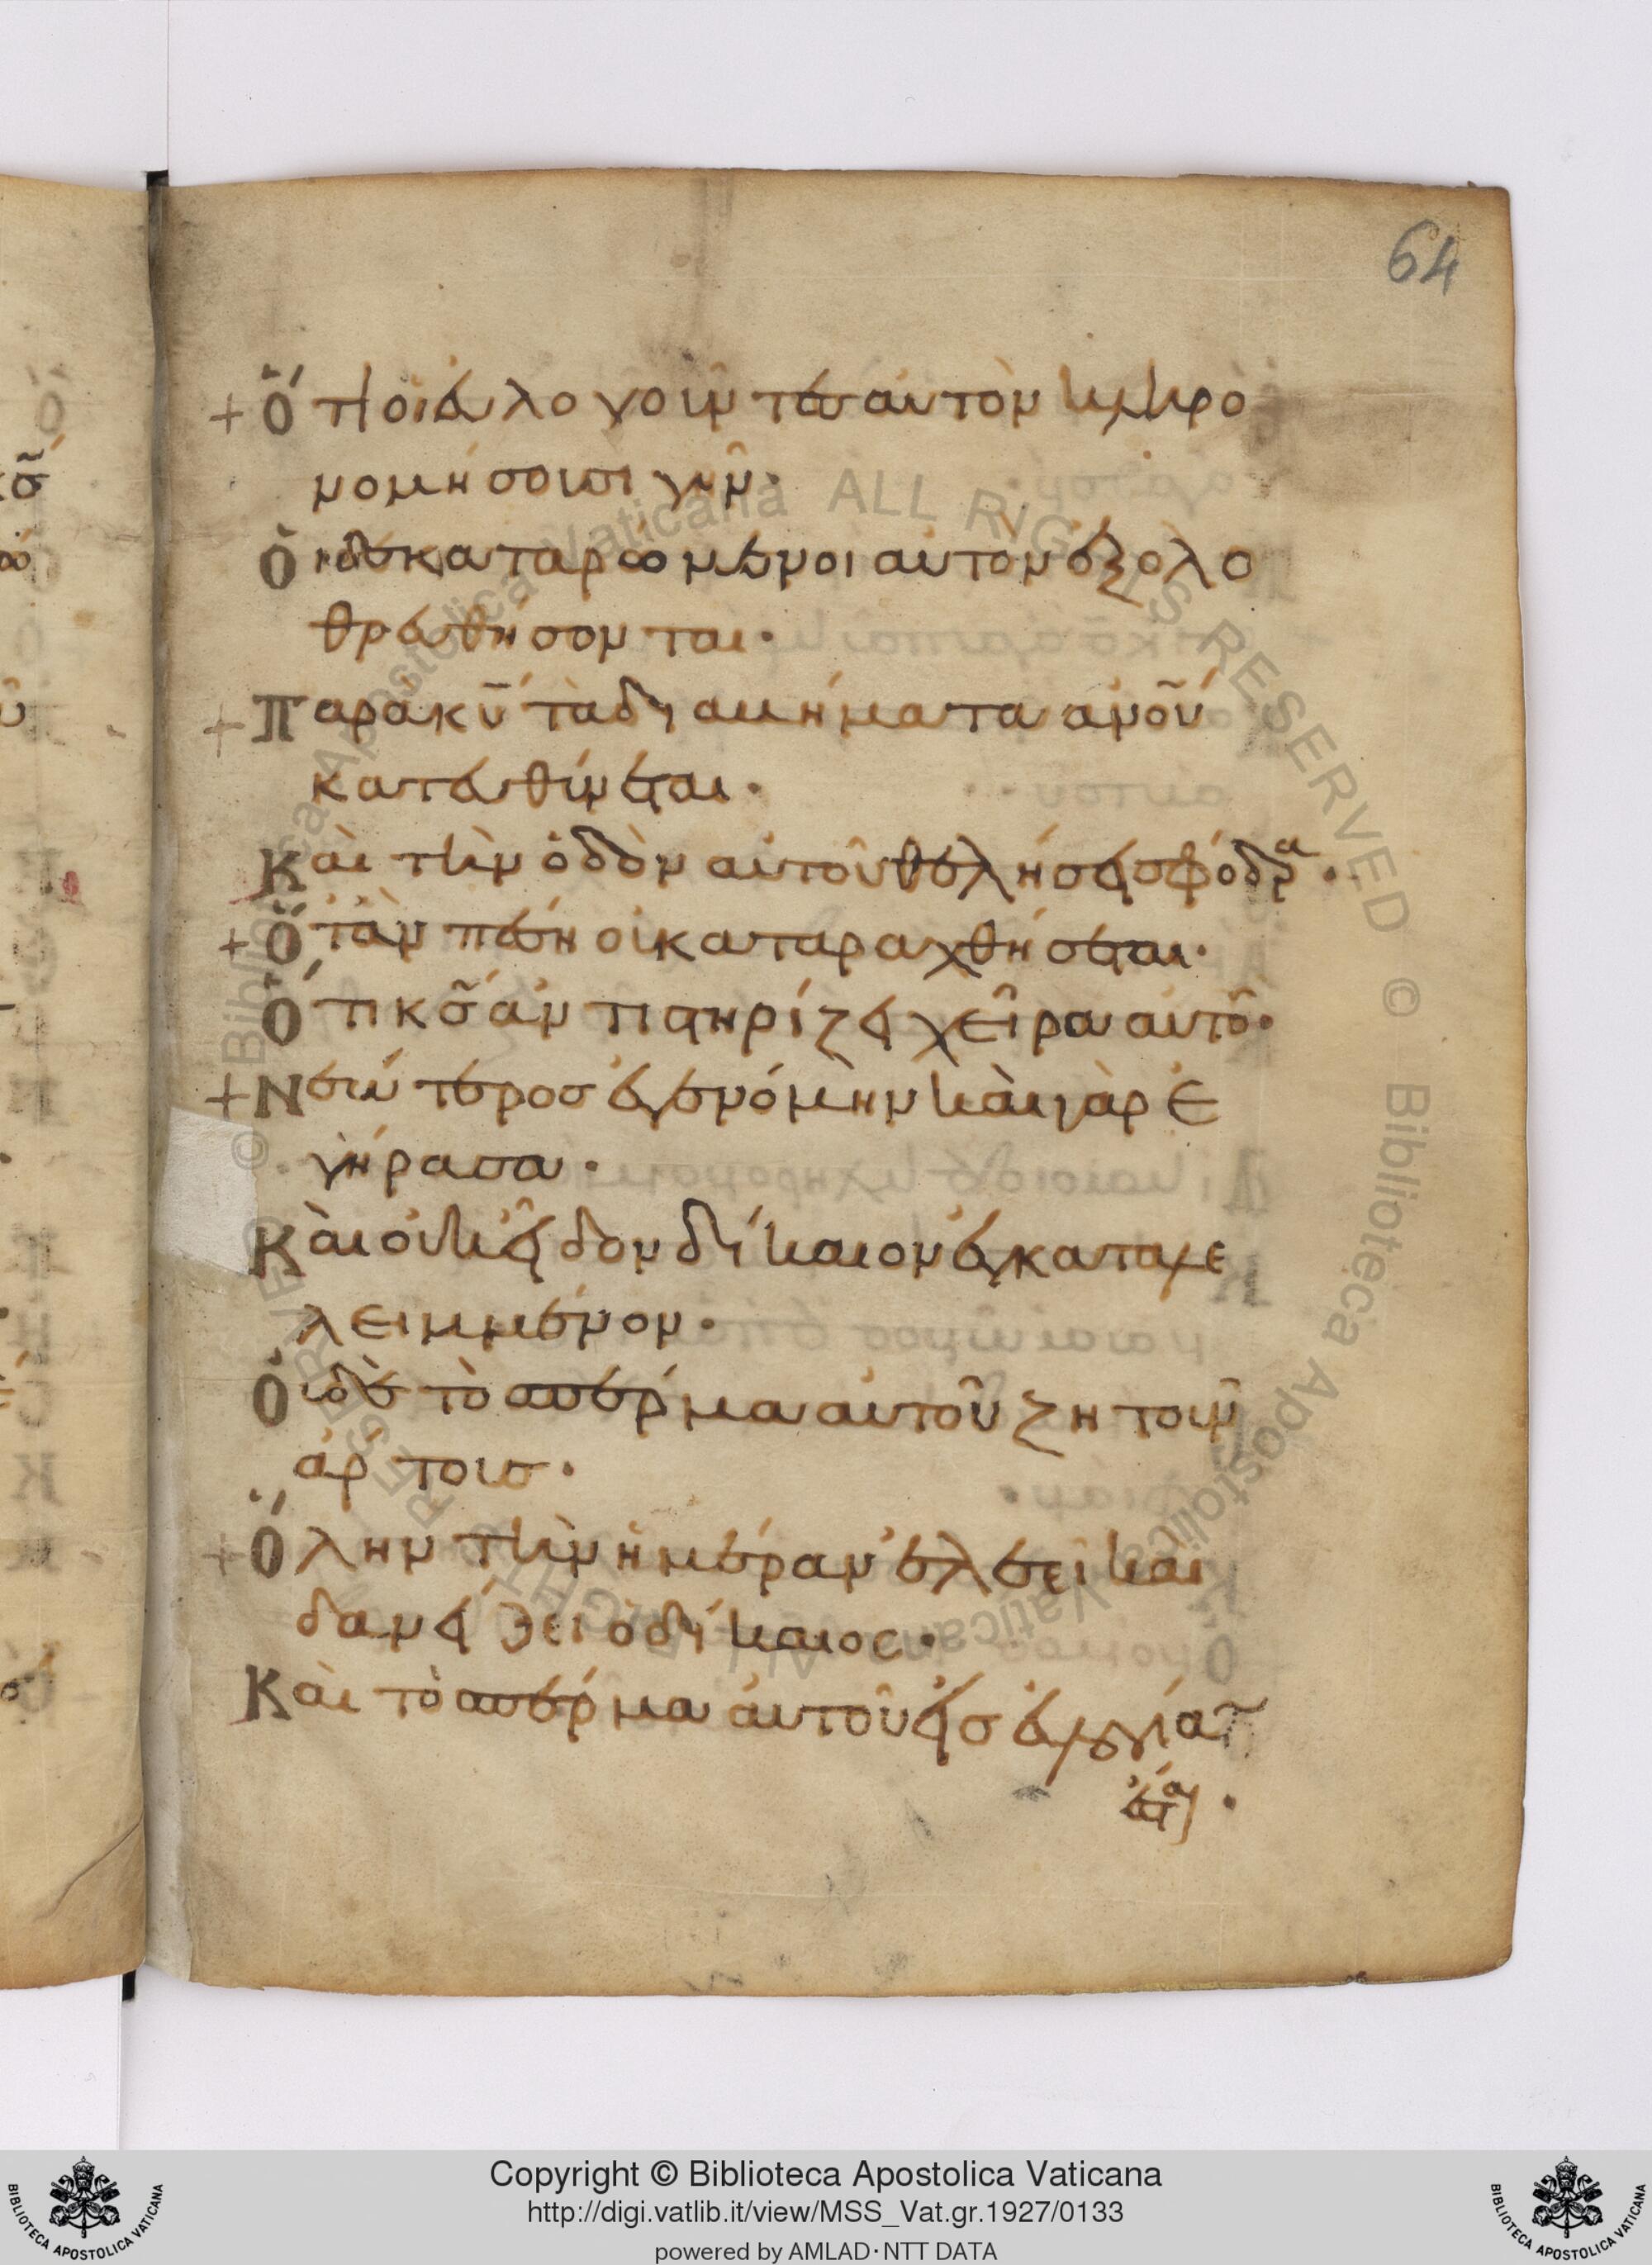 64
+ Ὅτι οἱ εὐλογοῦντες αὐτὸν κληρο
νομήσουσι γῆν·
Ὁι δὲ καταρώμενοι αὐτὸν ἐξολο
θρευθήσονται·
+ Παρὰ κ̅υ̅ τὰ διαβήματα α̅ν̅ο̅υ̅
κατευθύνεται·
Καὶ τὴν ὁδὸν αὐτοῦ θελήσει σφόδρα·
+ Ὅταν πέση οὐ καταραχθήσεται·
Ὅτι κ̅σ̅ ἀντιστηρίζει χεῖρα αὐτοῦ·
+ Νεώτερος ἐγενόμην καὶ γὰρ ἐ
γήρασα·
Καὶ οὐκ εἶδον δίκαιον ἐγκαταλε
λειμμένον·
Ὁυδὲ τὸ σπέρμα αὐτοῦ ζητοῦν
ἄρτους·
+ Ὅλην τὴν ἡμέραν ἐλεεῖ καὶ
δανείζει ὁ δίκαιος·
Καὶ τὸ σπέρμα αὐτοῦ εἰς εὐλογίαν
ἔσται·
© Biblioteca Apostolica Vaticana ALL RIGHTS RESERVED © Biblioteca Apostolica Vaticana ALL RIGHTS RESERVED
Copyright © Biblioteca Apostolica Vaticana
http://digi.vatlib.it/view/MSS_Vat.gr.1927/0133
powered by AMLAD·NTT DATA
BIBLIOTECA APOSTOLICA VATICANA
BIBLIOTECA APOSTOLICA VATICANA